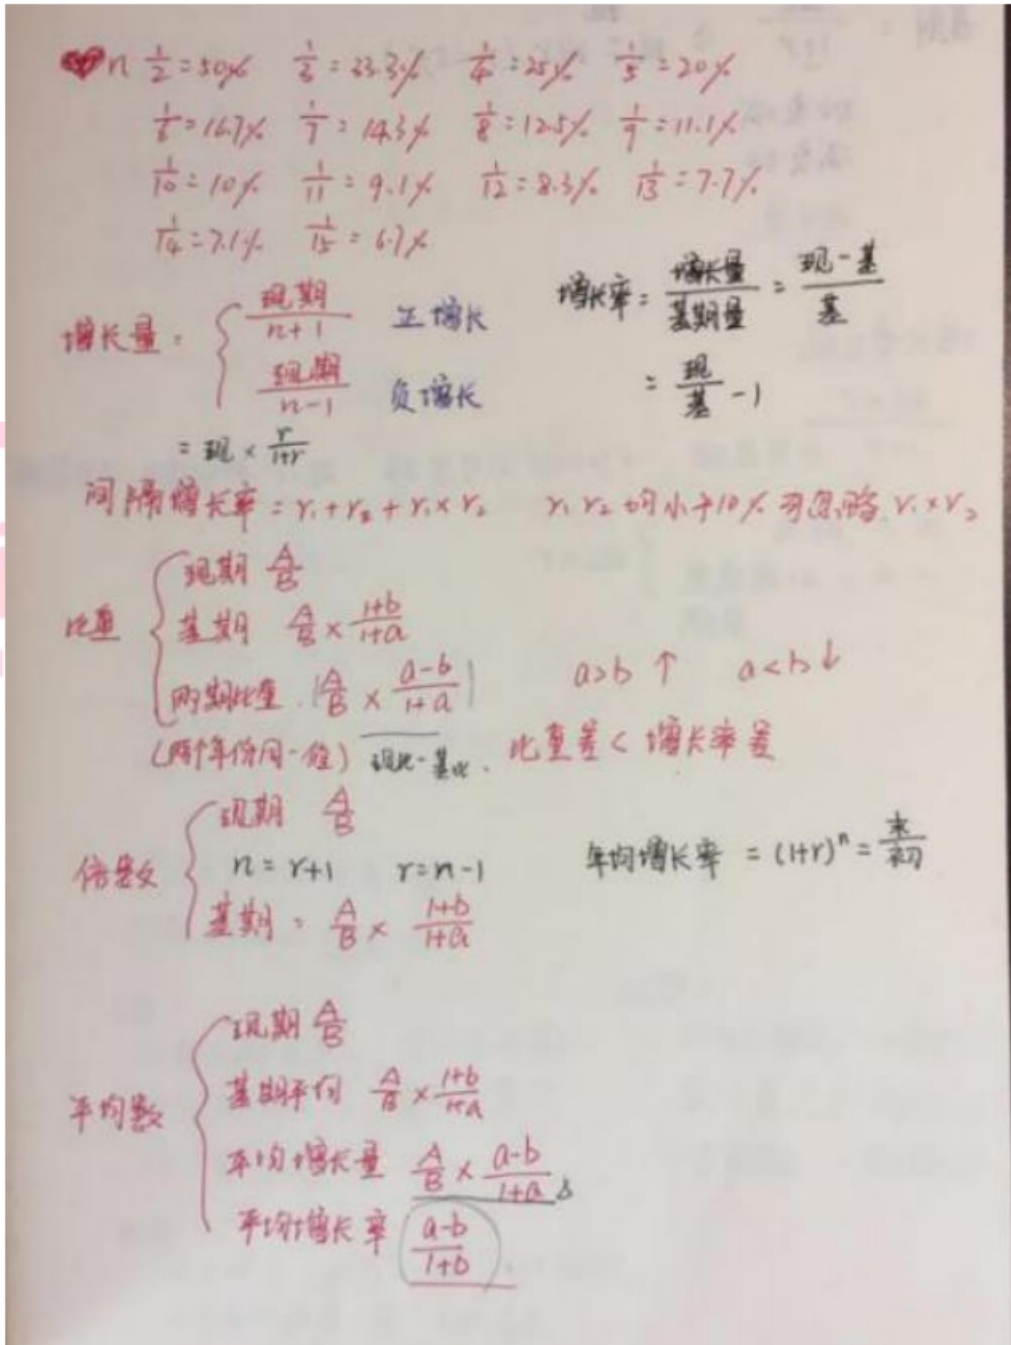 n 1/2=50% 1/3=33.3% 1/4=25% 1/5=20%
1/6=16.7% 1/7=14.3% 1/8=12.5% 1/9=11.1%
1/10=10% 1/11=9.1% 1/12=8.3% 1/13=7.7%
1/14=7.1% 1/15=6.7%
增长量: { 现期/(n+1) 正增长
现期/(n-1) 负增长
=现×r/(1+r)
增长率=增长量/基期量=(现-基)/基
=现/基-1
间隔增长率=r₁+r₂+r₁×r₂ r₁ r₂均小于10%可忽略r₁×r₂
比重 { 现期 A/B
基期 A/B×(1+b)/(1+a)
两期比重 |A/B×(a-b)/(1+a)| a>b↑ a<b↓
(两个年份同一值) 现比-基比 比重差<增长率差
倍数 { 现期 A/B
n=r+1 r=n-1
基期: A/B×(1+b)/(1+a)
年均增长率=(1+r)ⁿ=末/初
平均数 { 现期 A/B
基期平均 A/B×(1+b)/(1+a)
平均增长量 A/B×(a-b)/(1+a)
平均增长率 (a-b)/(1+b)